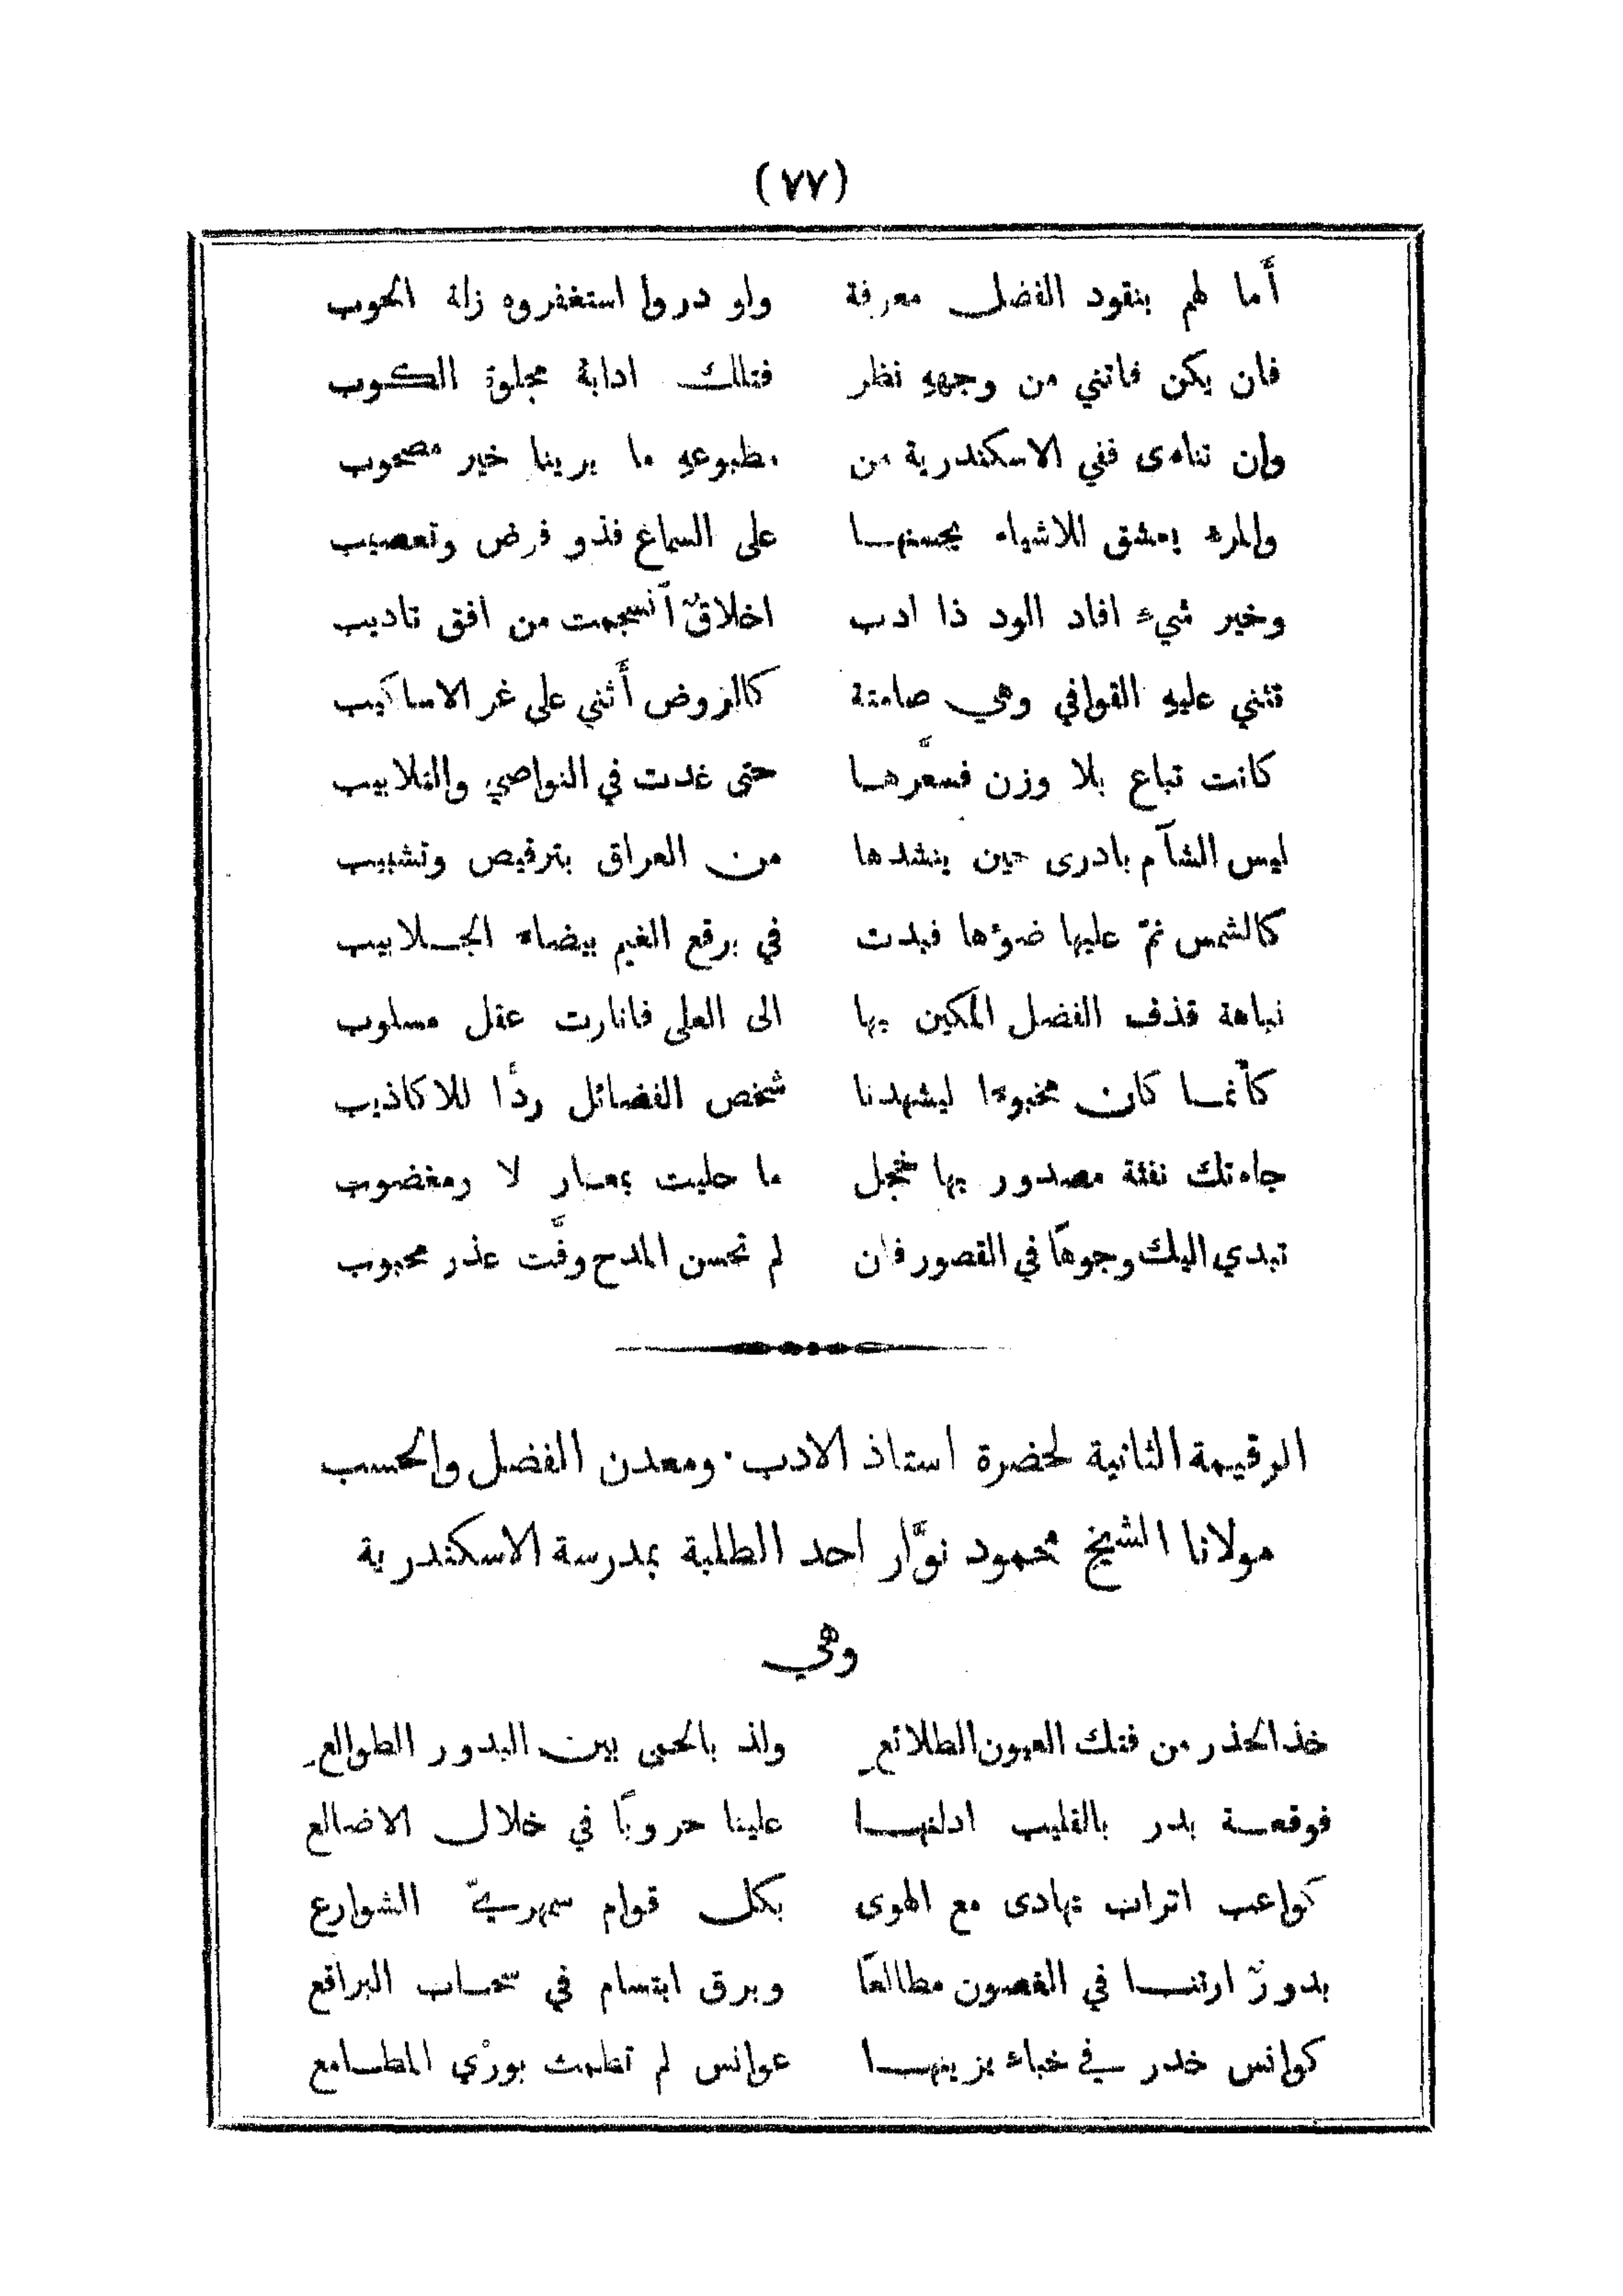 (٧٧)
أَما لهم بنقود الفضل معرفة ولو دروا استغفروه زلة الحوب
فان يكن فاتني من وجههِ نظر فتلك ادابهُ مجلوة الكوب
وان تناءى ففي الاسكندرية من مطبوعهِ ما يرينا خير مصحوب
والمرء يعشق للاشياء يحسنها على السماع فذو فرض وتعصيب
وخير شيء افاد الود ذا ادب اخلاقٌ اَنسجمت من افق تاديب
تثني عليهِ القوافي وهي صامتة كالروض أَثني على غر الاساكيب
كانت تباع بلا وزن فسعَّرها حتى غدت في النواصي والتلابيب
ليس الشآم بادرى حين ينشدها من العراق بترقيص وتشبيب
كالشمس نمّ عليها ضوءها فبدت في برقع الغيم بيضاء الجلابيب
نباهة قذف الفضل المكين بها الى العلى فانارت عقل مسلوب
كأنما كان مخبوءا ليشهدنا شخص الفضائل ردًا للاكاذيب
جاءتك نفثة مصدور بها خجل ما حليت بمعار لا ومغضوب
تبدي اليك وجوهًا في القصور فان لم تحسن المدح وفَّت عذر محبوب
الرقيمة الثانية لحضرة استاذ الادب · ومعدن الفضل والحسب
مولانا الشيخ محمود نوَّار احد الطلبة بمدرسة الاسكندرية
وهي
خذ الحذر من فتك العيون الطلائعِ ولذ بالحمى بين البدور الطوالعِ
فوقعة بدر بالقليب ادلتها علينا حروبًا في خلال الاضالع
كواعب اتراب تهادى مع الهوى بكل قوام سمهريّ الشوارع
بدورٌ ارتنا في الغصون مطالعًا وبرق ابتسام في سحاب البراقع
كوانس خدر في خباء يزينها عوانس لم تطمث بورْي المطامع